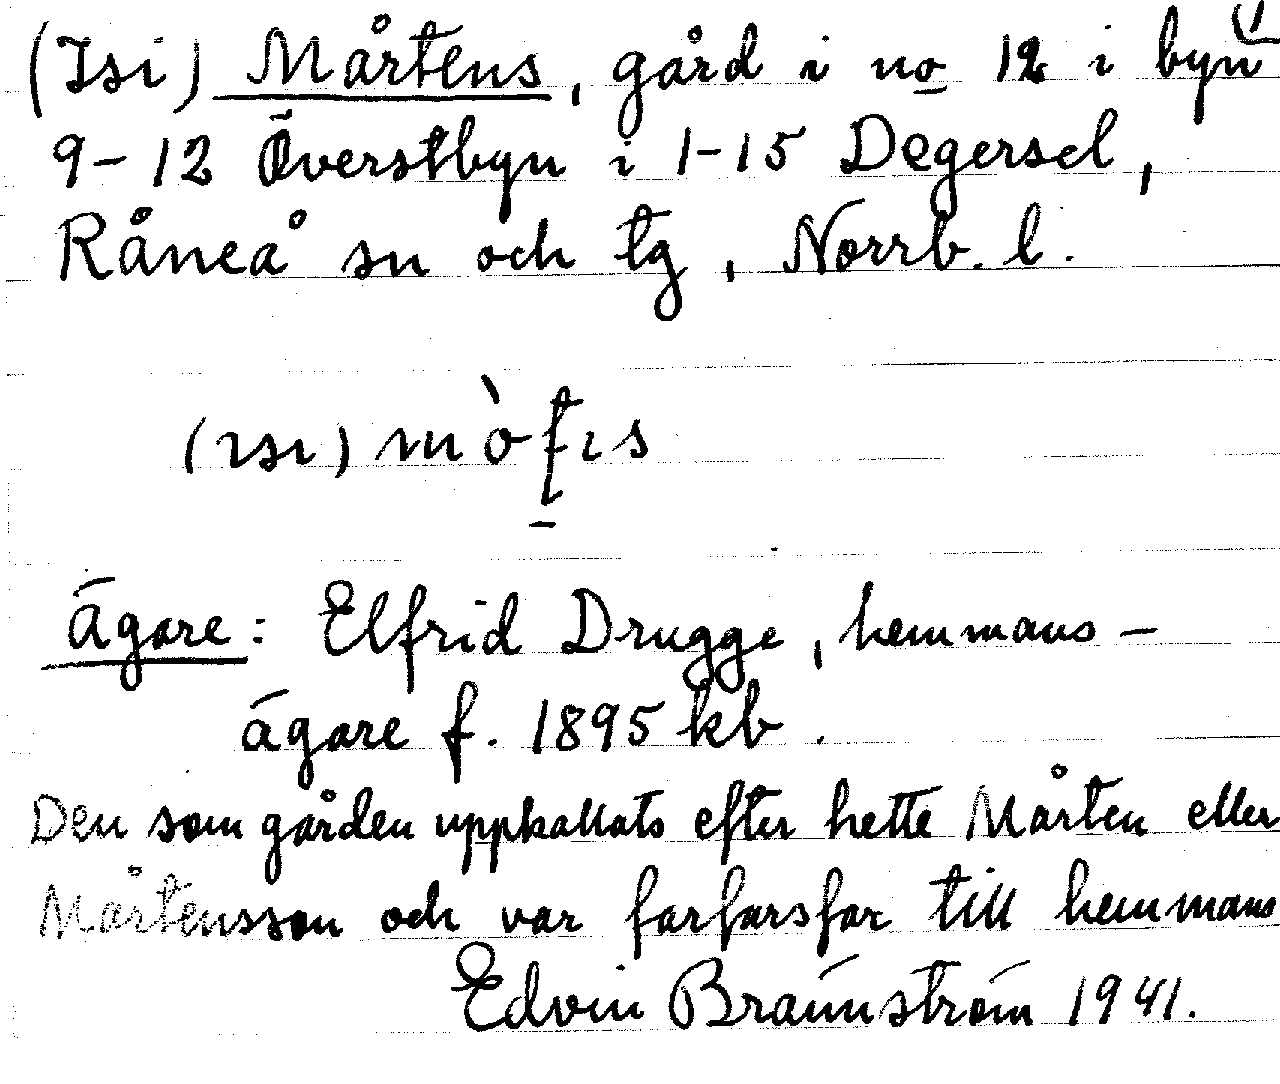 (Isi) Mårtens, gård i no 12 i byn
9-12 Överstbyn i 1-15 Degersel,
Råneå sn och tg, Norrb. l.
(ısı) mò
Ägare: Elfrid Drugge, hemmans-
ägare f. 1895 kb.
Den som gården uppkallats efter hette Mårten eller
Mårtensson och var farfarsfar till hemmans
Edvin Brännström 1941.